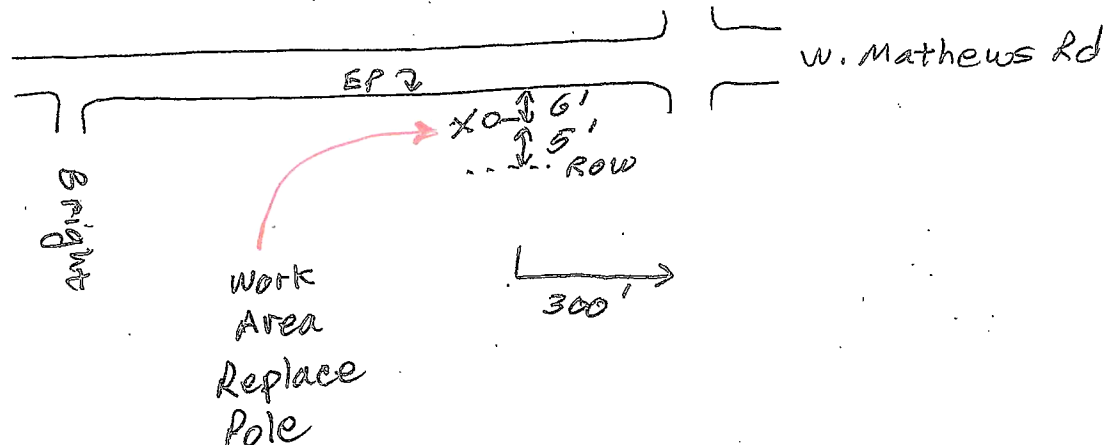 W. Mathews Rd
EP
6'
XO
5'
ROW
Bright
300'
Work
Area
Replace
Pole